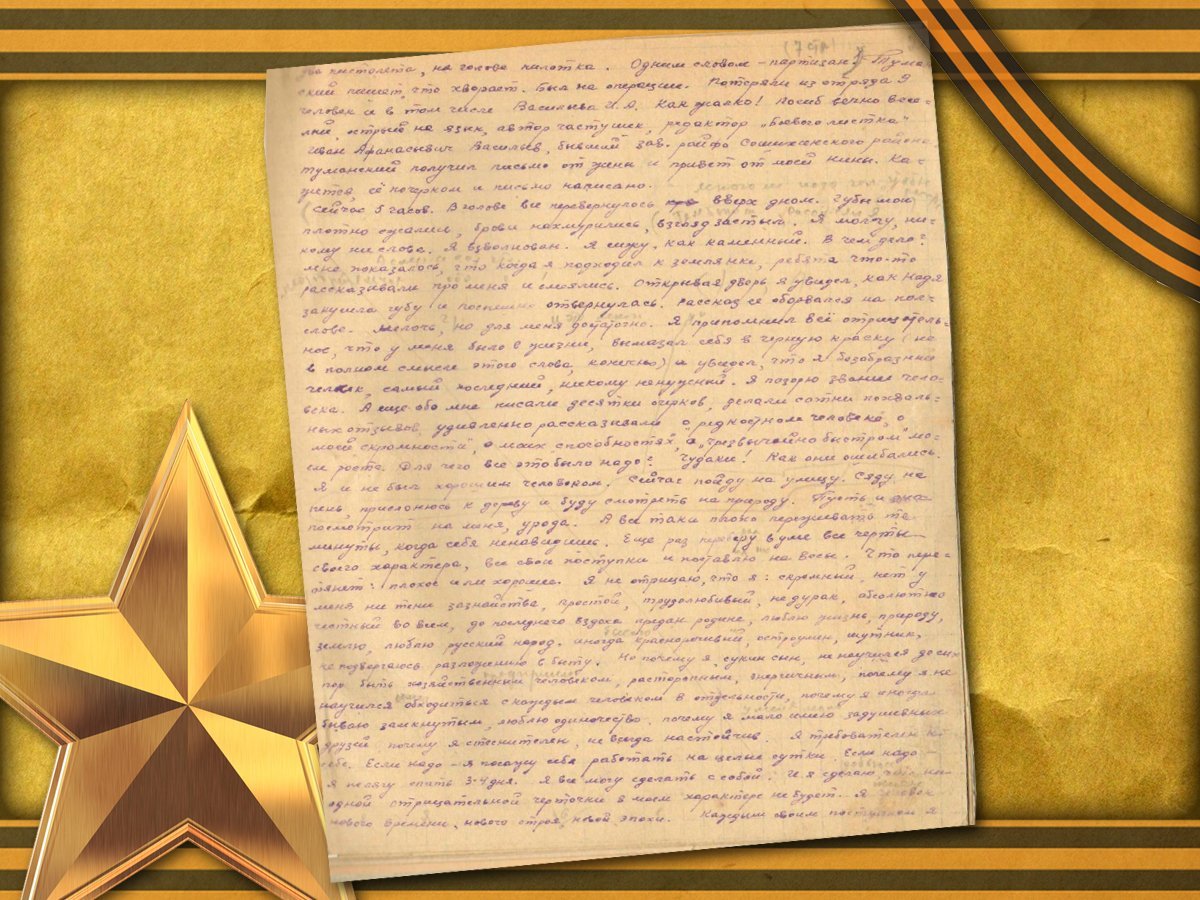 два пистолета, на голове пилотка. Одним словом – партизан. Тума-
ский пишет, что хворает. Был на операции. Потеряли из отряда 9
человек и в том числе Васильева И.А. Как жалко! Погиб вечно весе-
лый, острый на язык, автор частушек, редактор „Боевого листка"
Иван Афанасьевич Васильев, бывший зав. райфо Сошихинского района.
Туманский получил письмо от жены и привет от моей Нины. Ка-
жется, её почерком и письмо написано.
Сейчас 5 часов. В голове все перевернулось вверх дном. Губы мои
плотно сжались, брови нахмурились, взгляд застыл. Я молчу, ни-
кому ни слова. Я взволнован. Я сижу, как каменный. В чем дело?
Мне показалось, что когда я подходил к землянке, ребята что-то
рассказывали про меня и смеялись. Открывая дверь, я увидел, как Надя
закусила губу и поспешно отвернулась. Рассказ её оборвался на полу-
слове. Мелочь, но для меня достаточно. Я припомнил всё отрицатель-
ное, что у меня было в жизни, вымазал себя в черную краску (не
в полном смысле этого слова, конечно) и увидел, что я безобразный
человек, самый последний, никому ненужный. Я позорю звание чело-
века. А еще обо мне писали десятки очерков, делали сотни похваль-
ных отзывов, удивленно рассказывали о „редкостном человеке", о
„моей скромности", о моих способностях, о „чрезвычайно быстром" мо-
ем росте. Для чего все это было надо? Чудаки! Как они ошибались.
Я и не был хорошим человеком. Сейчас пойду на улицу. Сяду на
пень, прислонюсь к дереву и буду смотреть на природу. Пусть и она
посмотрит на меня, урода. А все таки плохо переживать те
минуты, когда себя ненавидишь. Еще раз переберу в уме все черты
своего характера, все свои поступки и поставлю на весы. Что пере-
тянет: плохое или хорошее. Я не отрицаю, что я: скромный, нет у
меня ни тени зазнайства, простой, трудолюбивый, не дурак, абсолютно
честный во всем, до последнего вздоха предан родине, люблю жизнь, природу,
землю, люблю русский народ. иногда красноречивый, остроумен, шутник,
не подвергаюсь разложению в быту. Но почему я, сукин сын, не научился до сих
пор быть хозяйственным человеком, расторопным, энергичным, почему я не
научился обходиться с каждым человеком в отдельности, почему я иногда
бываю замкнутым, люблю одиночество, почему я мало имею задушевных
друзей, почему я стеснителен, не всегда настойчив. Я требователен к
себе. Если надо – я посажу себя работать на целые сутки. Если надо –
я не лягу спать 3-4 дня. Я все могу сделать с собой. И я сделаю что ни
одной отрицательной черточки в моем характере не будет. Я человек
нового времени, нового строя, новой эпохи. Каждым своим поступком я